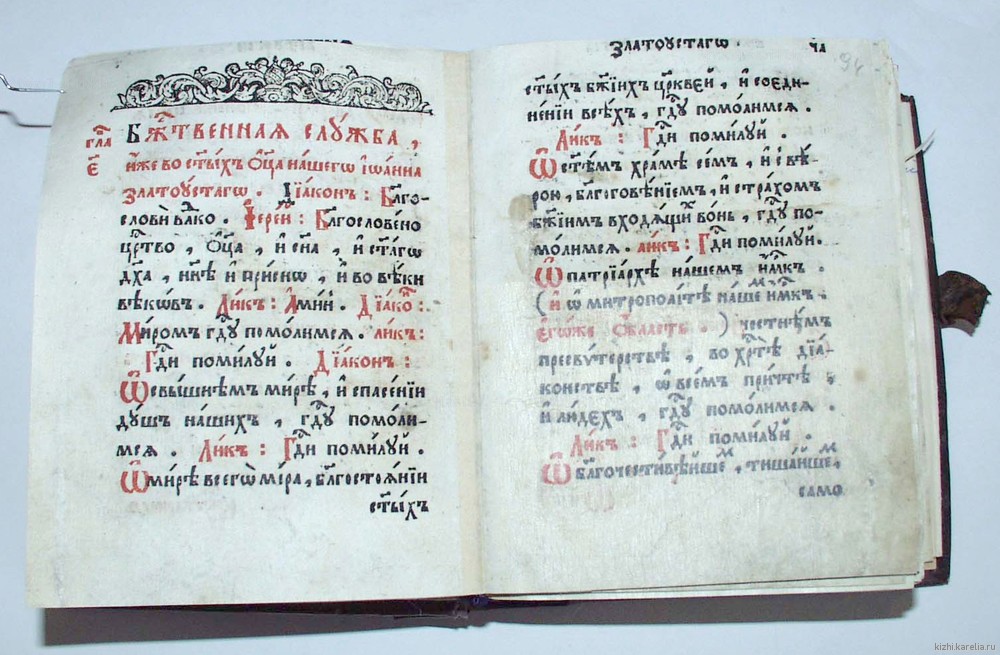 гла
є҃
Бж҃твенная слꙋ́жба ,
и҆́же во ст҃ы́хъ Ѻ҆ц҃а̀ на́шегѡ і҆ѡа́нна
златоꙋ́стагѡ . Дїа́конъ : Бл҃го-
словѝ влⷣко . І҆ере́й : Бл҃гослове́но
црⷭ҇тво , Ѻ҆ц҃а̀ , и҆ сн҃а , и҆ ст҃а́гѡ
дх҃а , ны́нѣ и҆ при́снѡ , и҆ во вѣ́ки
вѣкѡ́въ . Ли́къ : А҆ми́нь . Дїа́ко :
Ми́ромъ гдⷭ҇ꙋ помо́лимсѧ . ли́къ :
Гдⷭ҇и поми́лꙋй . Дїа́конъ :
Ѡ҆ свы́шнемъ ми́рѣ , и҆ спасе́нїи
дꙋ́шъ на́шихъ , гдⷭ҇ꙋ помо́ли-
мсѧ . Ли́къ : Гдⷭ҇и поми́лꙋй .
Ѡ҆ ми́рѣ всегѡ̀ мі́ра , бл҃госто́ѧнїи
ст҃ы́хъ
Златоꙋстагѡ
ч҃а
94
ст҃ы́хъ бж҃їихъ цр҃кве́й , и҆ соеди-
не́нїи всѣ́хъ , гдⷭ҇ꙋ помо́лимсѧ .
Ли́къ : Гдⷭ҇и поми́лꙋй .
Ѡ҆ ст҃ѣ́мъ хра́мѣ се́мъ , и҆ с вѣ́-
рою , бл҃гоговѣ́нїемъ , и҆ стра́хомъ
бж҃їимъ входѧ́щих во́нь , гдⷭ҇ꙋ по-
мо́лимсѧ . ли́къ : Гдⷭ҇и поми́лꙋй .
Ѡ҆ патрїа́рхѣ на́шемъ и҆м҃къ .
( и҆ ѡ҆ митрополі́тѣ на́шемъ и҆м҃къ .
є҆гѡ́же ѡ҆́бласть . ) честнѣ́мъ
пресвѵ́терствѣ , во хрⷭ҇тѣ̀ дїа́-
конствѣ , ѡ҆ все́мъ при́чтѣ ,
и҆ лю́дехъ , гдⷭ҇ꙋ помо́лимсѧ .
Ли́къ : Гдⷭ҇и поми́лꙋй .
Ѡ҆ бл҃гочести́вѣйшемъ , тиша́йшемъ ,
само
kizhi.karelia.ru